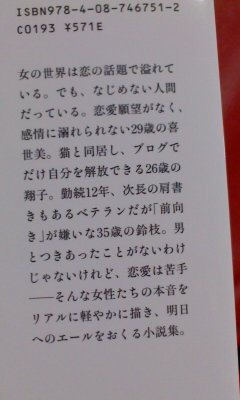 ISBN978-4-08-746751-2
C0193 ¥571E
女の世界は恋の話題で溢れて
いる。でも、なじめない人間
だっている。恋愛願望がなく、
感情に溺れられない29歳の喜
世美。猫と同居し、ブログで
だけ自分を解放できる26歳の
翔子。勤続12年、次長の肩書
きもあるベテランだが「前向
き」が嫌いな35歳の鈴枝。男
とつきあったことがないわけ
じゃないけれど、恋愛は苦手
――そんな女性たちの本音を
リアルに軽やかに描き、明日
へのエールをおくる小説集。